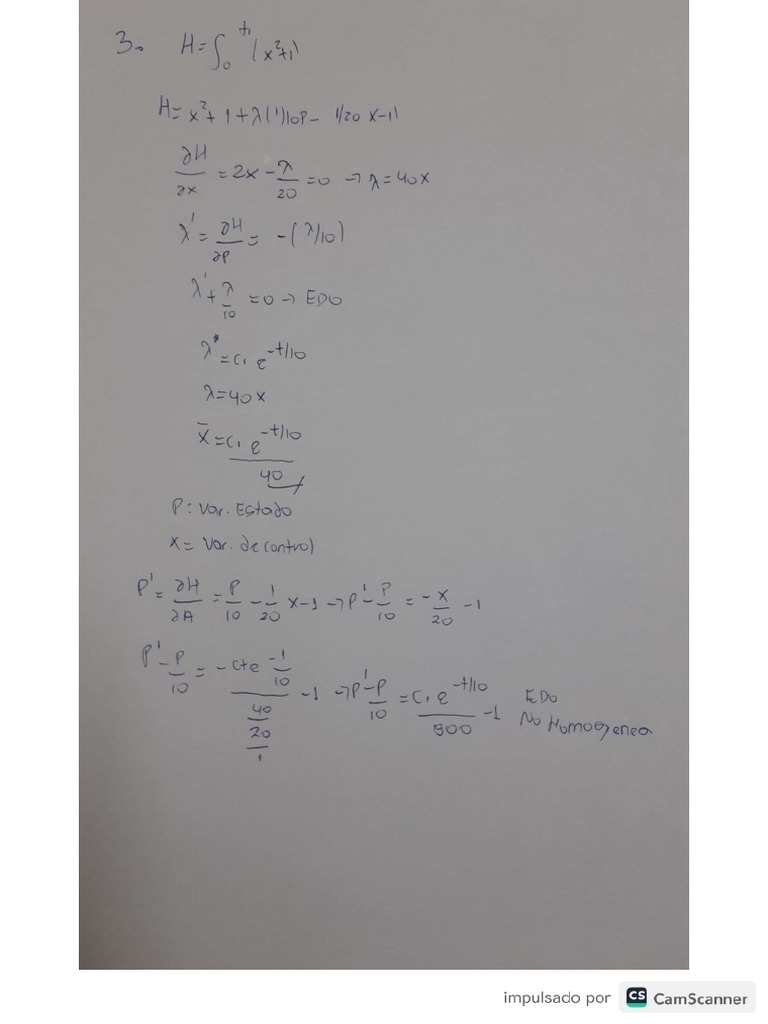 3. H=∫₀^t₁ (x²+1)
H= x²+ 1 + λ(1/10P - 1/20 x-1)
∂H/∂x = 2x - λ/20 =0 → λ=40x
λ' = ∂H/∂P = -(λ/10)
λ' + λ/10 =0 → EDO
λ* =C₁ e^-t/10
λ=40x
x̄ = C₁ e^-t/10 / 40
P: Var. Estado
x= Var. de control
P' = ∂H/∂A = P/10 - 1/20 x-1 → P' - P/10 = -x/20 -1
P' - P/10 = -cte -1/10 / 40/20/1 -1 → P' - P/10 = C₁ e^-t/10 / 800 -1 EDO
No Homogenea
impulsado por CS CamScanner